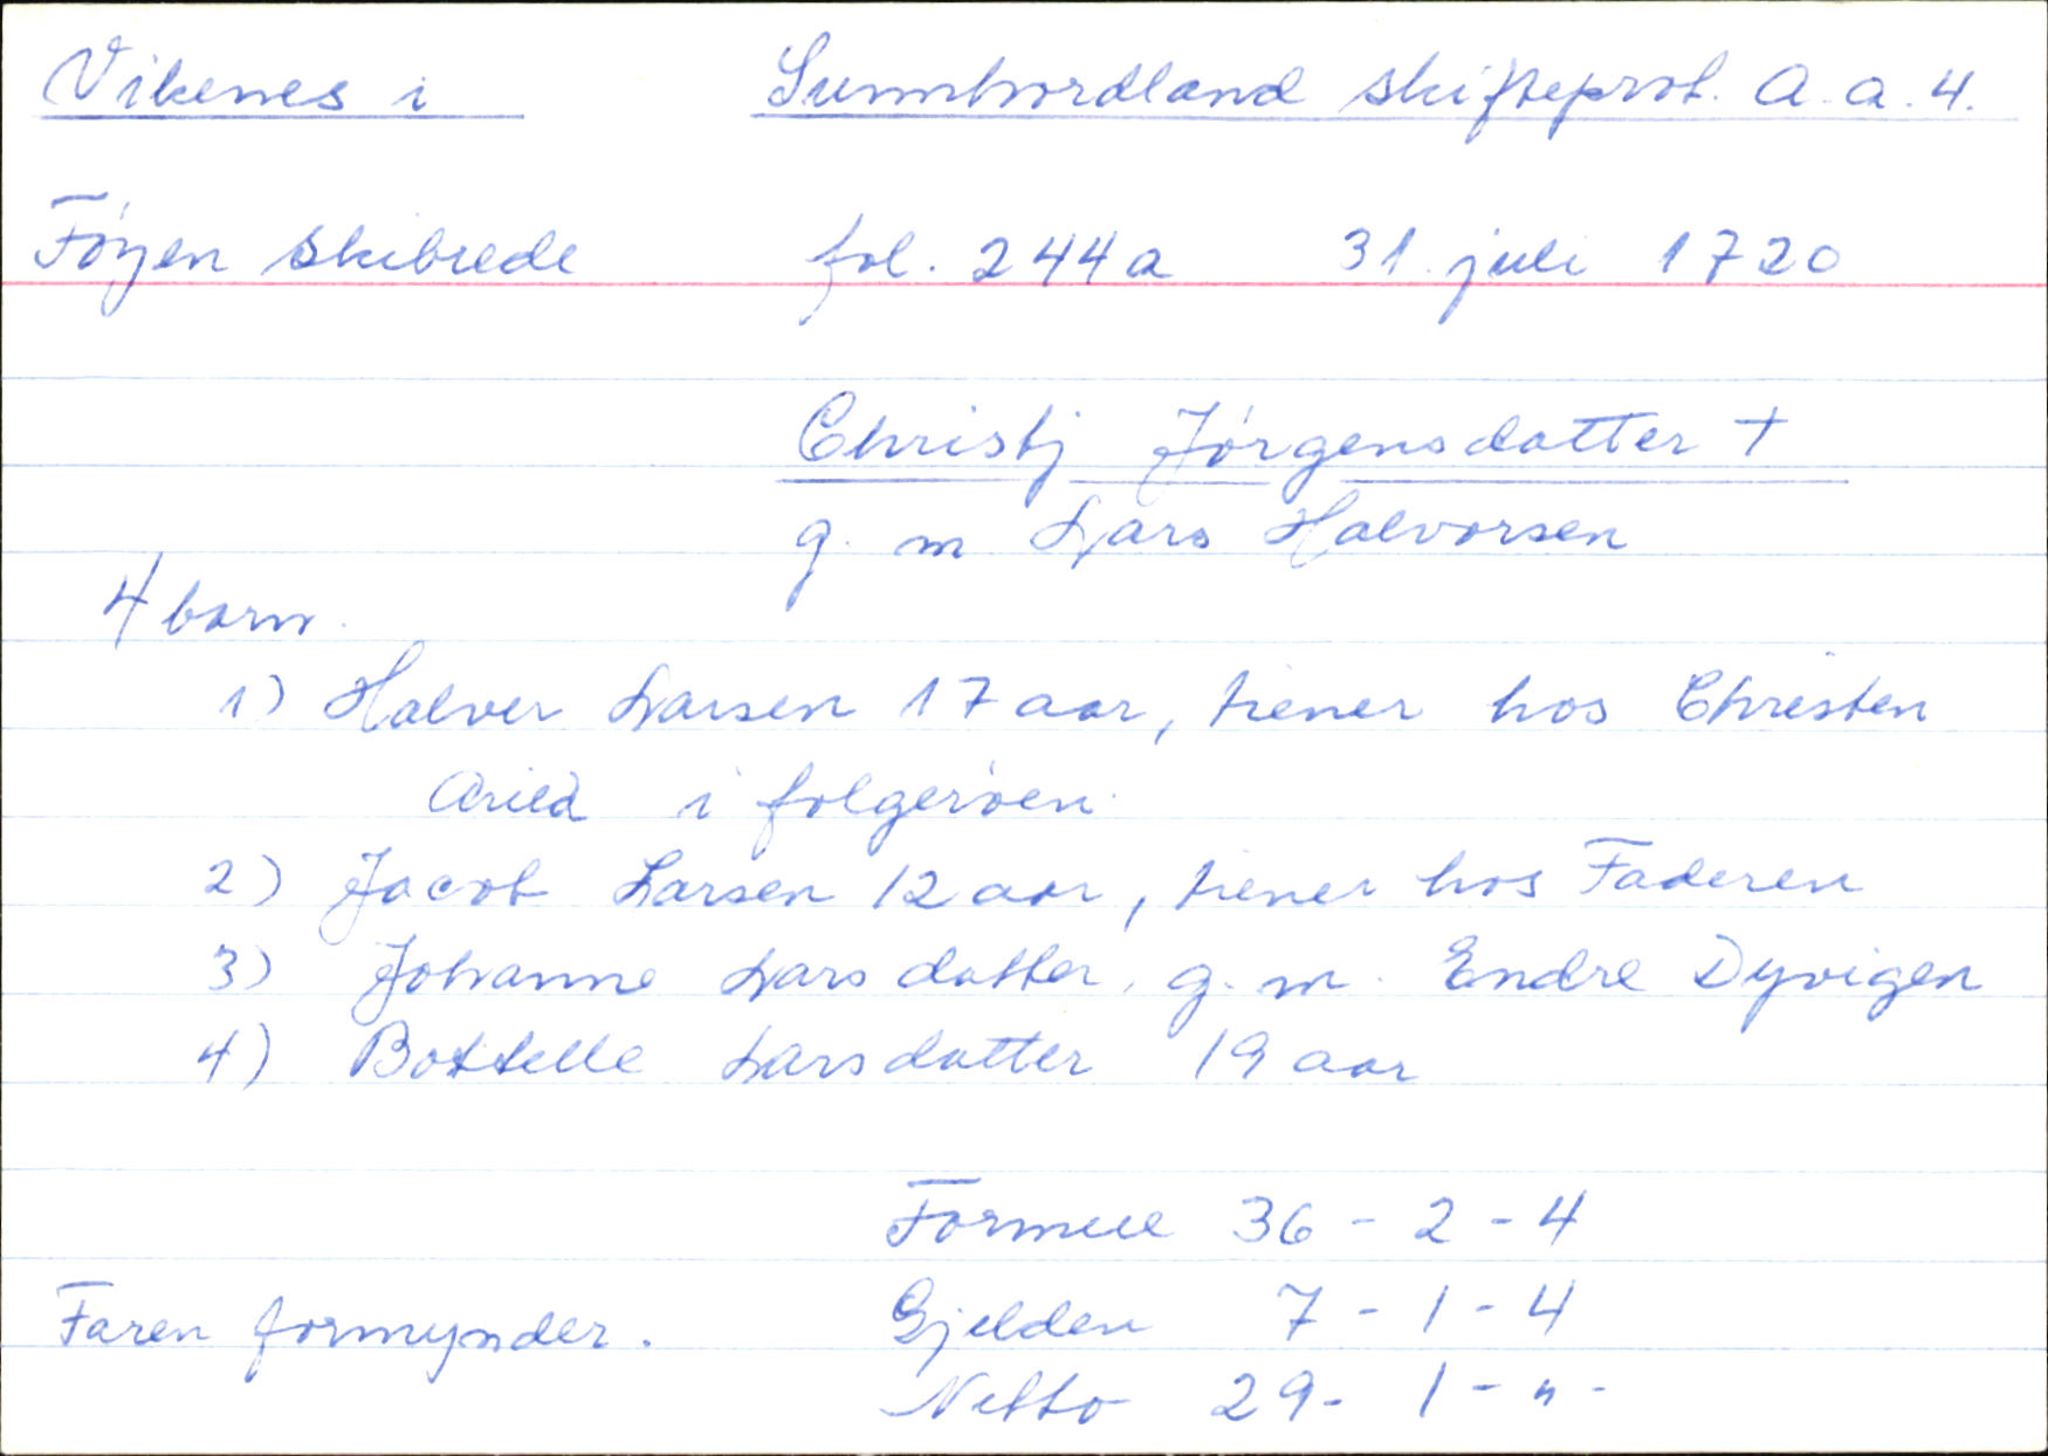 Vikenes i Sunnhordland skifteprot. A.a.4.
Föyen skibrede fol. 244a 31. juli 1720
Christj Jörgensdatter †
g. m Lars Halvorsen
4 barn.
1) Halver Larsen 17 aar, tiener hos Christen
Arild i folgeröen.
2) Jacob Larsen 12 aar, tiener hos Faderen
3) Johanne Larsdatter, g. m. Endre Dyvigen
4) Bottelle Larsdatter 19 aar
Formue 36 - 2 - 4
Faren formynder. Gjelden 7 - 1 - 4
Netto 29 - 1 - " -